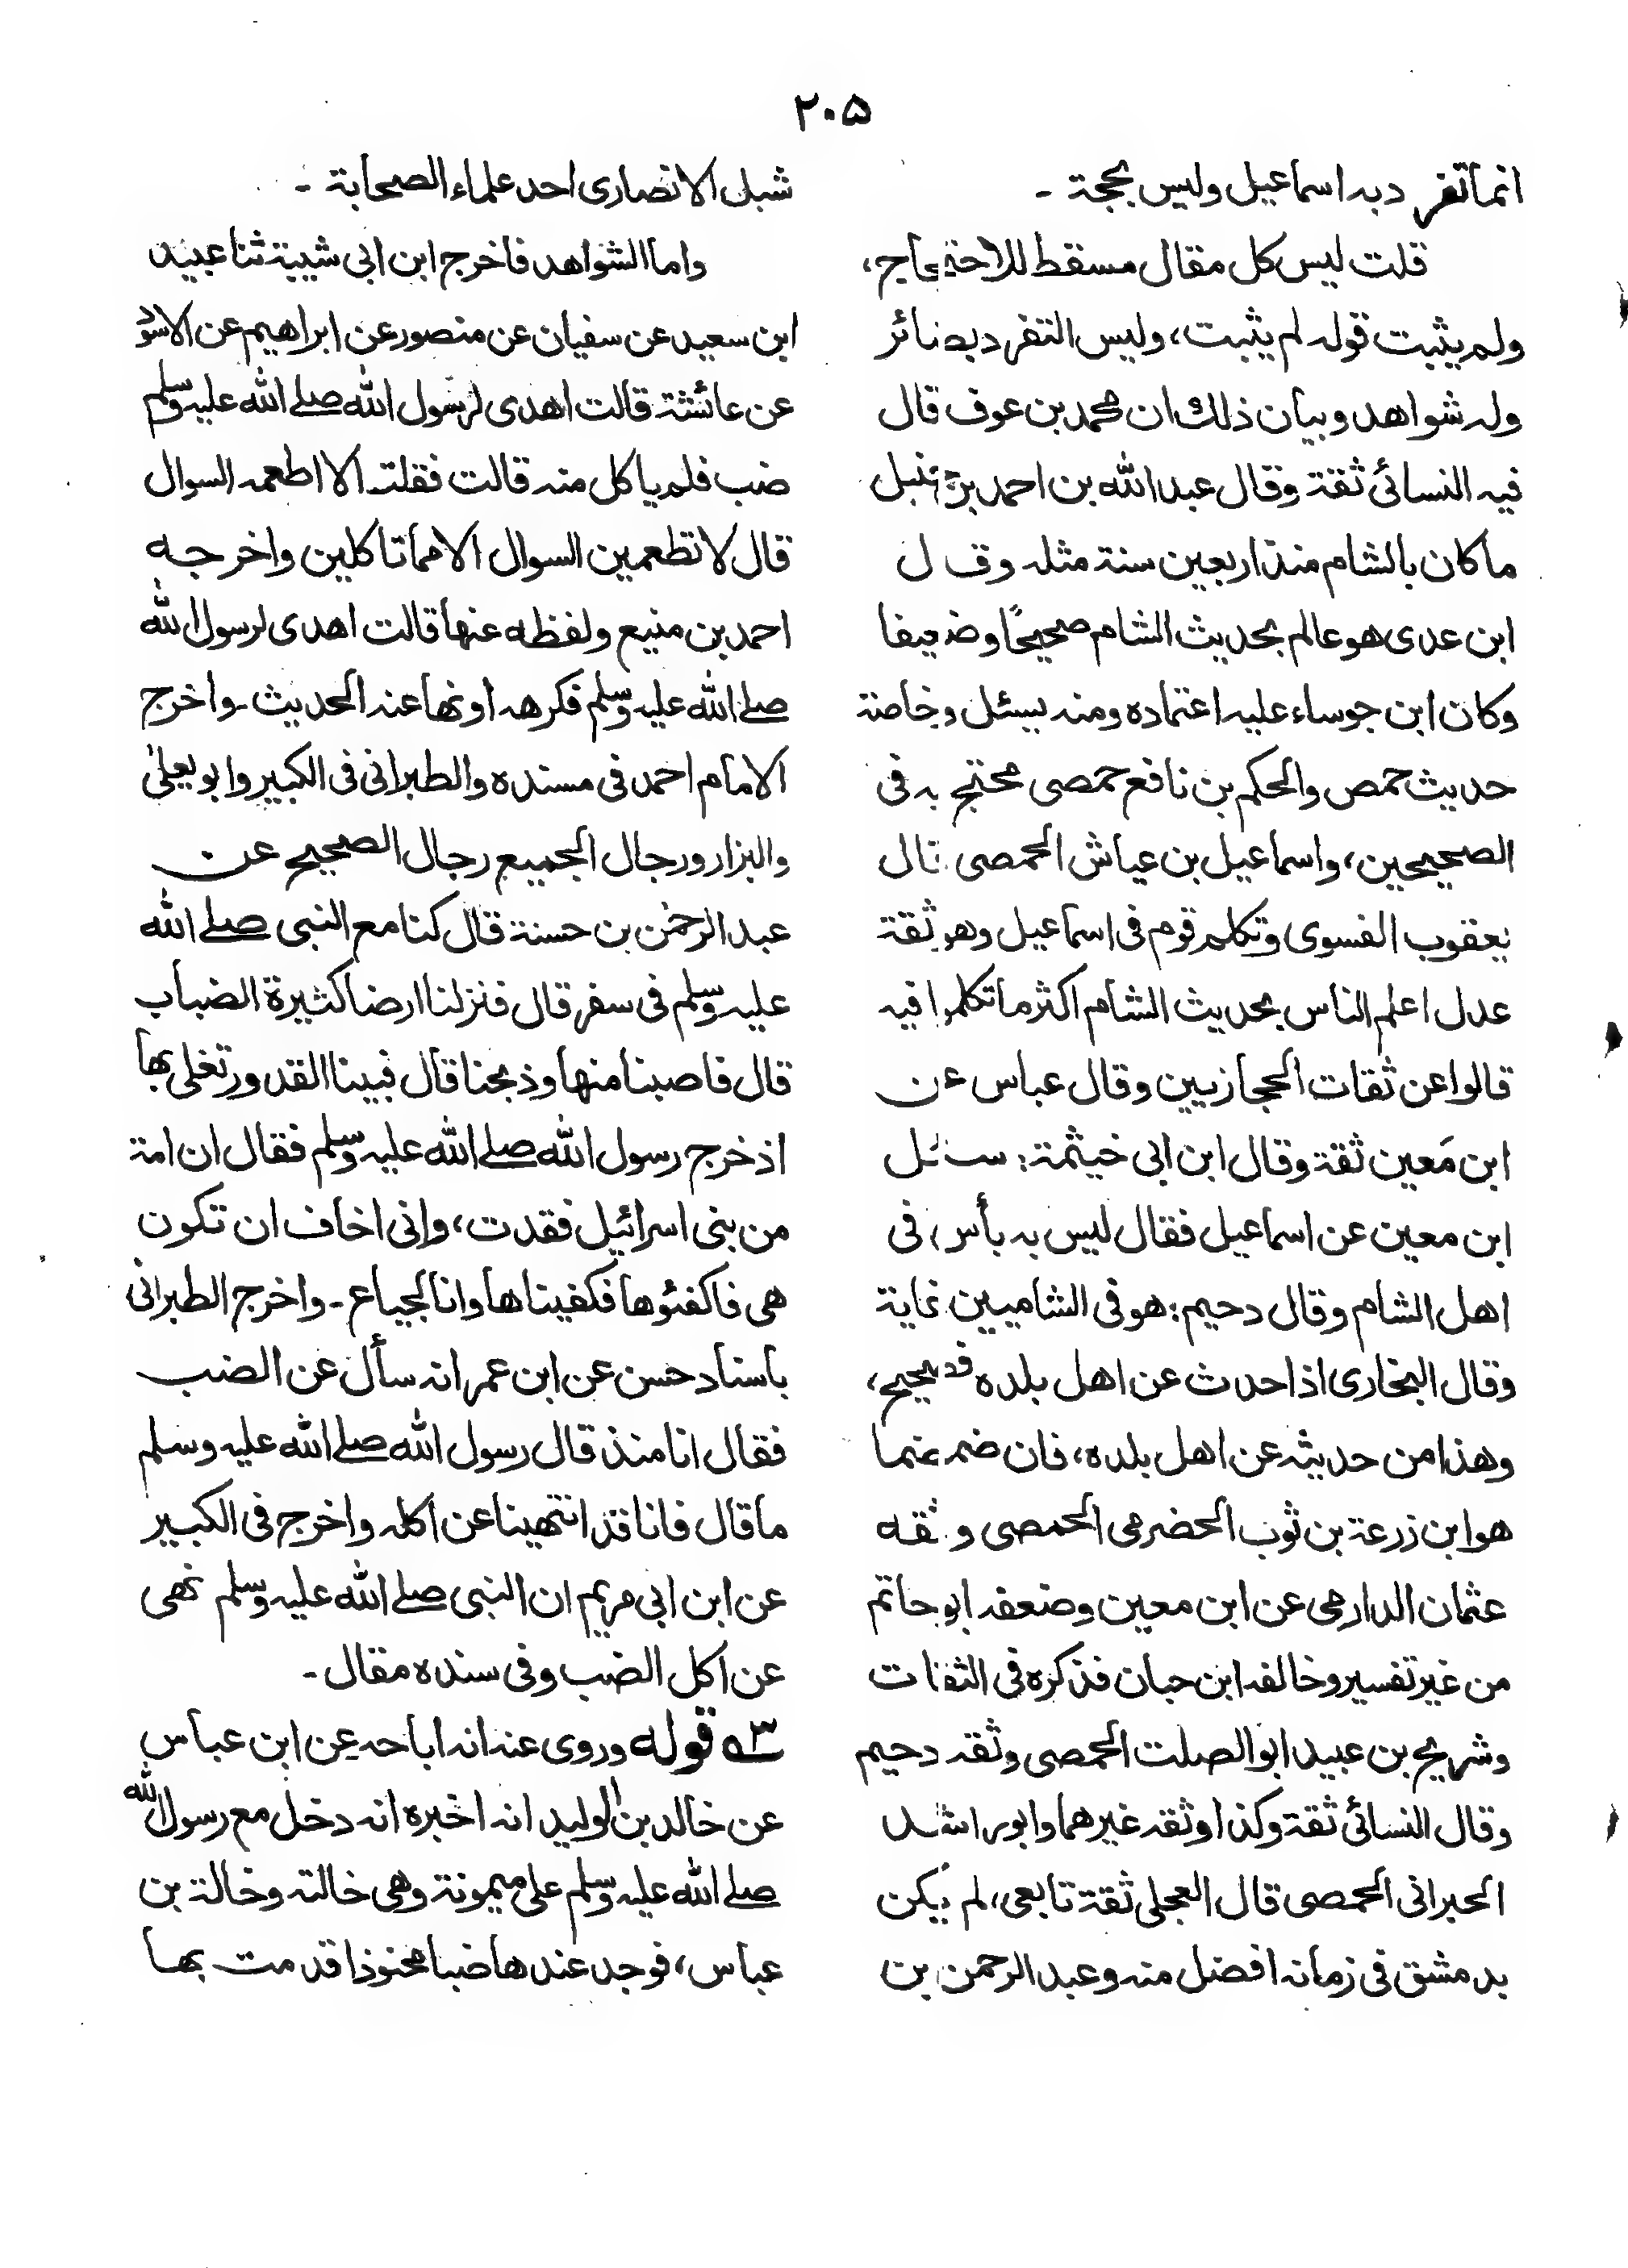 ۲۰۵
انما تفرد به اسماعيل وليس بحجة ـ
قلت ليس كل مقال مسقط للاحتجاج،
ولم يثبت قوله لم يثبت، وليس التفرد بضائر
وله شواهد وبيان ذلك ان محمد بن عوف قال
فيه النسائى ثقة وقال عبد الله بن احمد بن حنبل
ما كان بالشام منذ اربعين سنة مثله وقال
ابن عدى هو عالم بحديث الشام صحيحًا وضعيفا
وكان ابن جوساء عليه اعتماده ومنه يسئل وخاصة
حديث حمص والحكم بن نافع حمصى محتج به فى
الصحيحين، واسماعيل بن عياش الحمصى قال
يعقوب الفسوى وتكلم قوم فى اسماعيل وهو ثقة
عدل اعلم الناس بحديث الشام اكثر ما تكلموا فيه
قالوا عن ثقات الحجازيين وقال عباس عن
ابن مَعين ثقة وقال ابن ابى خيثمة: سئل
ابن معين عن اسماعيل فقال ليس به بأس، فى
اهل الشام وقال دحيم: هو فى الشاميين غاية
وقال البخارى اذا حدث عن اهل بلده فصحيح،
وهذا من حديثه عن اهل بلده، فان ضمضما
هو ابن زرعة بن ثوب الحضرمى الحمصى وثقه
عثمان الدارمى عن ابن معين وضعفه ابو حاتم
من غير تفسير وخالفه ابن حبان فذكره فى الثقات
وشريح بن عبيد ابو الصلت الحمصى وثقه دحيم
وقال النسائى ثقة وكذا وثقه غيرهما وابو راشد
الحبرانى الحمصى قال العجلى ثقة تابعى، لم يكن
بدمشق فى زمانه افضل منه وعبد الرحمن بن
شبل الانصارى احد علماء الصحابة ـ
واما الشواهد فاخرج ابن ابى شيبة ثنا عبيد
ابن سعيد عن سفيان عن منصور عن ابراهيم عن الاسود
عن عائشة قالت اهدى لرسول الله صلے الله عليه وسلم
ضب فلم ياكل منه قالت فقلت الا اطعمه السوال
قال لا تطعمين السوال الا مما تاكلين واخرجه
احمد بن منيع ولفظه عنها قالت اهدى لرسول الله
صلے الله عليه وسلم فكرهه او نهٰا عنه الحديث ـ واخرج
الامام احمد فى مسنده والطبرانى فى الكبير وابو يعلىٰ
والبزار ورجال الجميع رجال الصحيح عن
عبد الرحمٰن بن حسنة قال كنا مع النبى صلے الله
عليه وسلم فى سفر قال فنزلنا ارضا كثيرة الضباب
قال فاصبنا منها وذبحنا قال فبينا القدور تغلى بها
اذ خرج رسول الله صلے الله عليه وسلم فقال ان امة
من بنى اسرائيل فقدت، وانى اخاف ان تكون
هى فاكفئوها فكفيناها وانا لجياع ـ واخرج الطبرانى
باسناد حسن عن ابن عمر انه سأل عن الضب
فقال انا منذ قال رسول الله صلے الله عليه وسلم
ما قال فانا قد انتهينا عن اكله واخرج فى الكبير
عن ابن ابى مريم ان النبى صلے الله عليه وسلم نهى
عن اكل الضب وفى سنده مقال ـ
۳ قوله وروى عنه انه اباحه عن ابن عباس
عن خالد بن الوليد انه اخبره انه دخل مع رسول الله
صلے الله عليه وسلم على ميمونة وهى خالته وخالة بن
عباس، فوجد عندها ضبا محنوذا قدمت بها